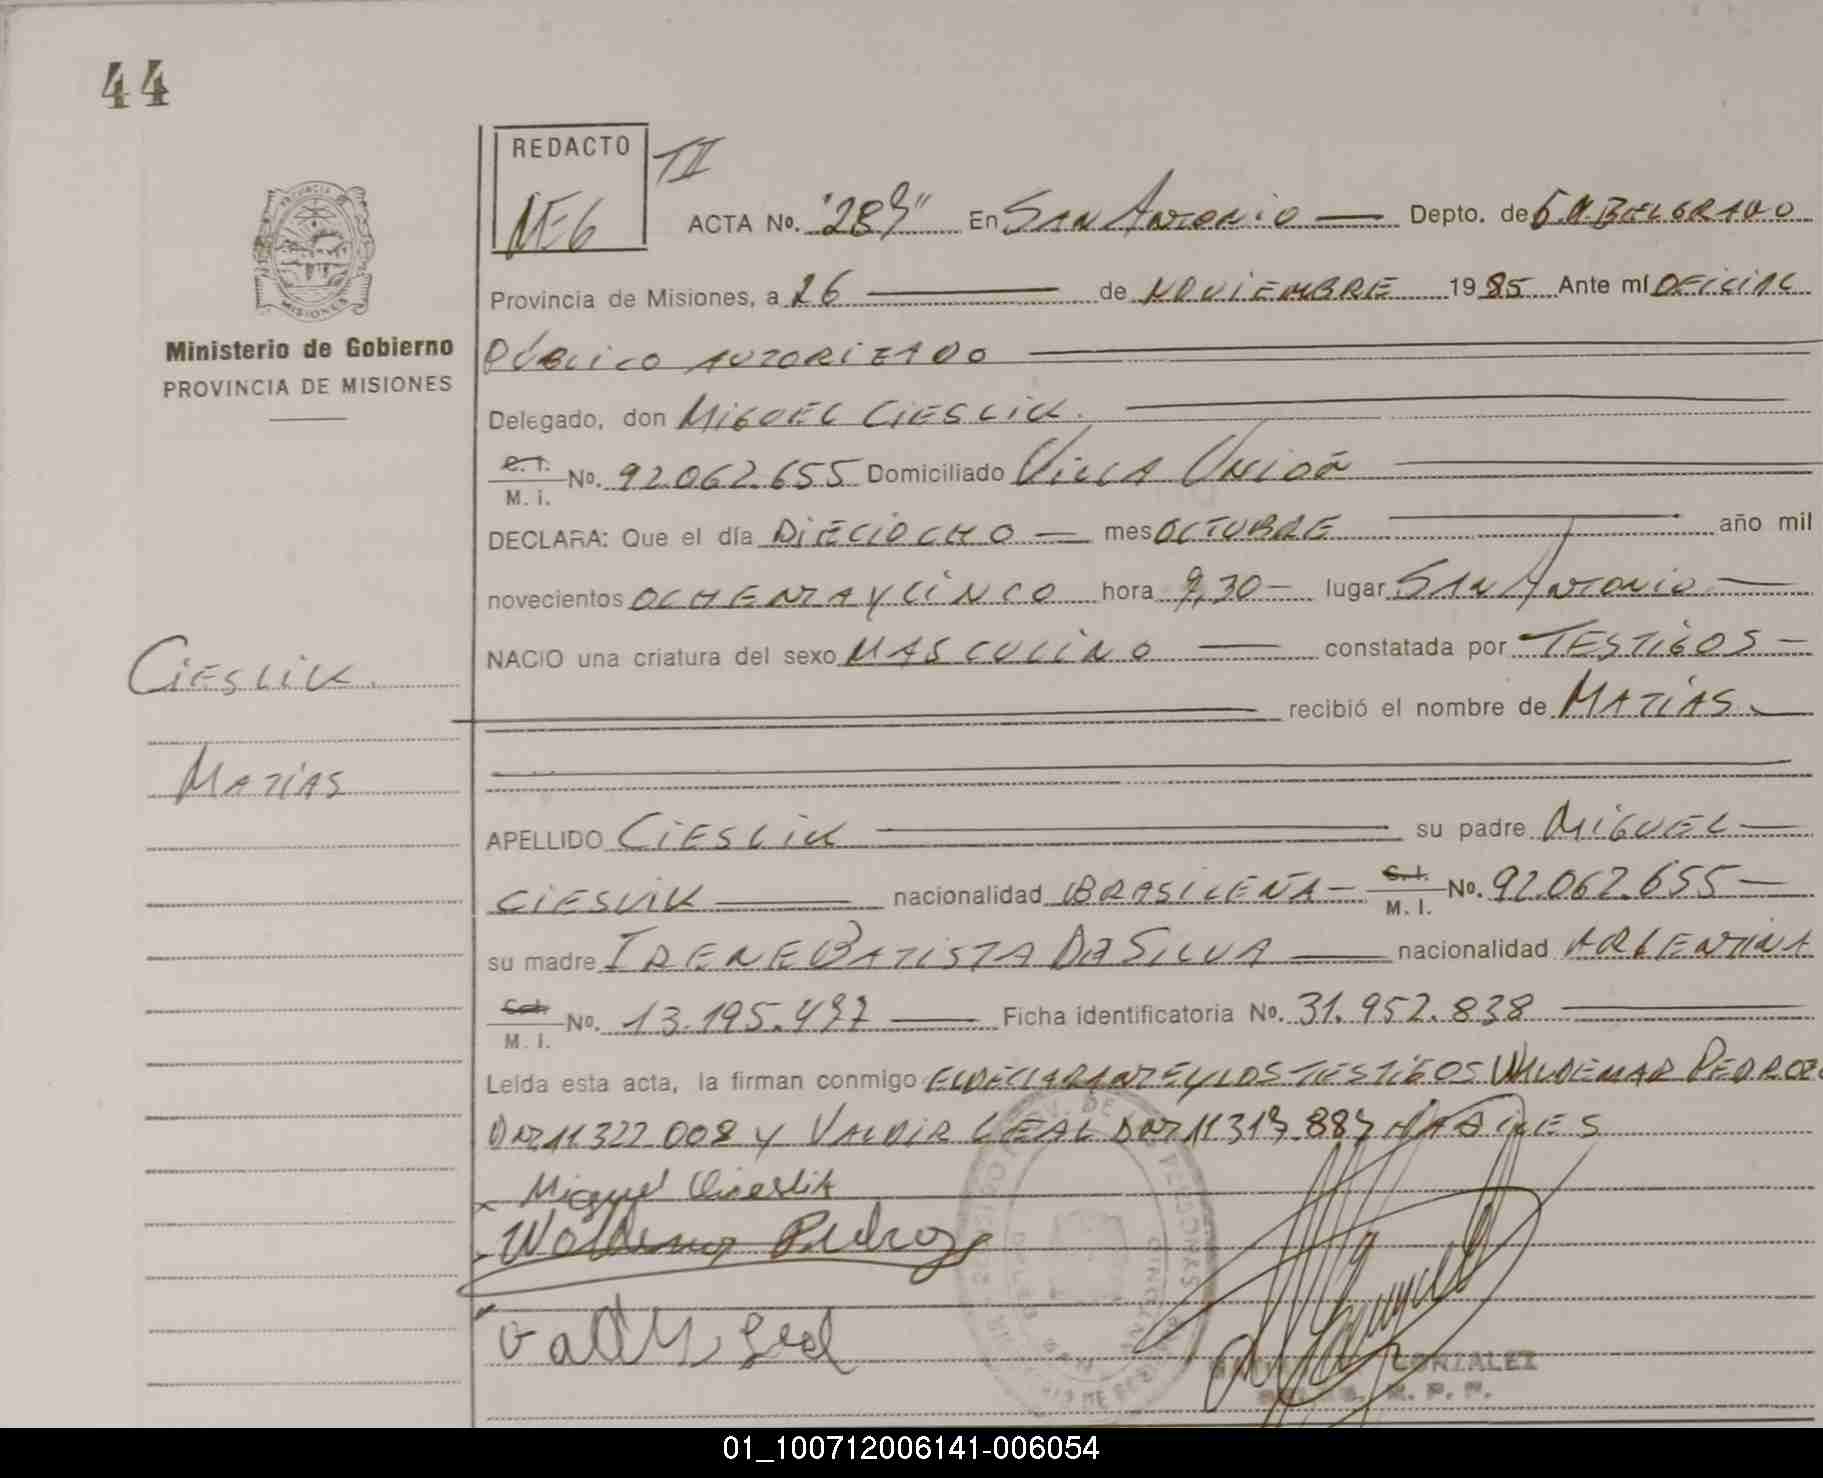 44
REDACTO
II
ME6
ACTA No. "289" En SAN ANTONIO Depto. de G.M. BELGRANO
Provincia de Misiones, a 26 de NOVIEMBRE 1985 Ante mí OFICIAL
PÚBLICO AUTORIZADO
MISIONES
Ministerio de Gobierno
PROVINCIA DE MISIONES
Delegado, don MIGUEL CIESLIK.
C. I.
M. I. No. 92.062.655 Domiciliado VILLA UNIÓN
DECLARA: Que el día DIECIOCHO mes OCTUBRE año mil
novecientos OCHENTA Y CINCO hora 9,30 lugar SAN ANTONIO
NACIO una criatura del sexo MASCULINO constatada por TESTIGOS
CIESLIK.
recibió el nombre de MATÍAS
MATÍAS
APELLIDO CIESLIK su padre MIGUEL
CIESLIK nacionalidad BRASILEÑA C. I.
M. I. No. 92.062.655
su madre IRENE BATISTA DA SILVA nacionalidad ARGENTINA
M. I. No. 13.195.497 Ficha identificatoria No. 31.952.838
Leída esta acta, la firman conmigo EL DECLARANTE Y LOS TESTIGOS WALDEMAR PEDROZO
DNI 11322.008 Y VALDIR LEAL DNI 11319.889 HÁBILES
Miguel Cieslik
GONZALEZ
01_100712006141-006054